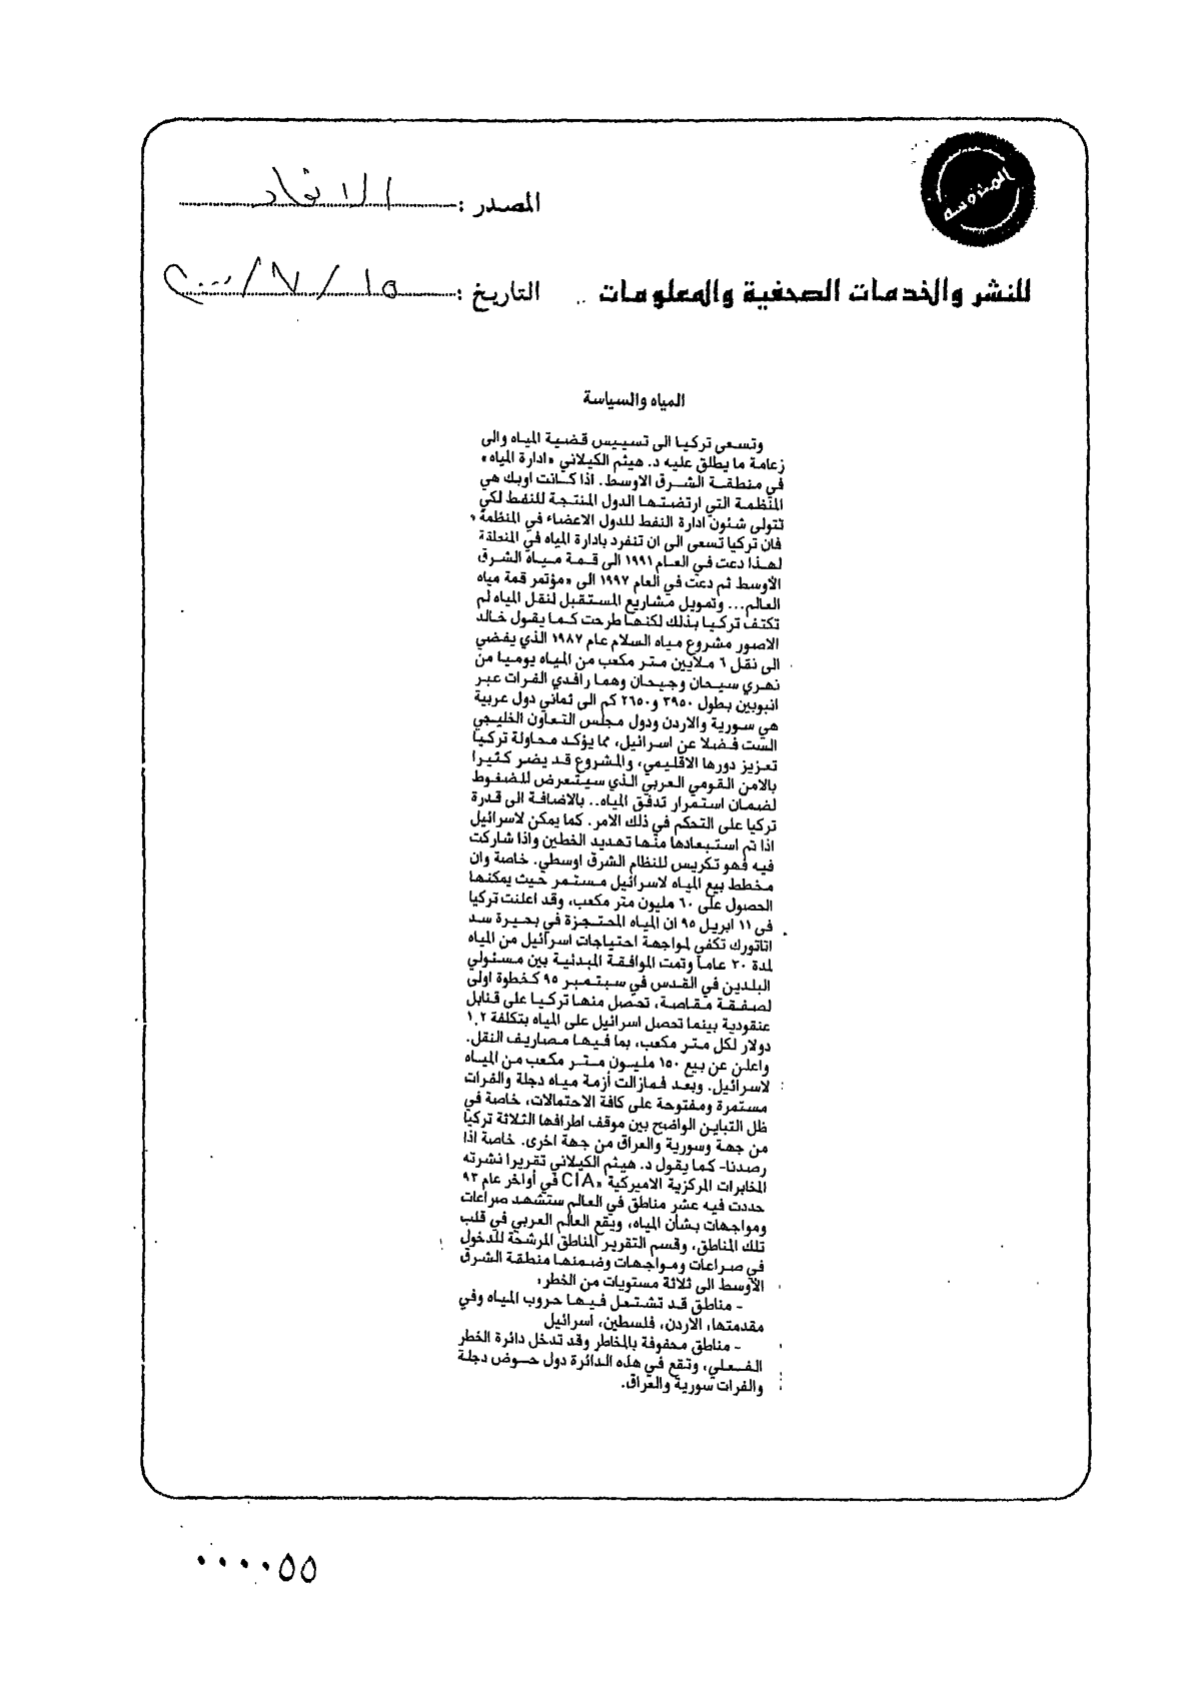 المحروسة
المصدر : الاتحاد
للنشر والخدمات الصحفية والمعلومات .. التاريخ : ١٥ / ٧ / ٢٠٠٠
المياه والسياسة
وتسعى تركيا الى تسييس قضية المياه والى
زعامة ما يطلق عليه د. هيثم الكيلاني «ادارة المياه»
في منطقة الشرق الاوسط. اذا كانت اوبك هي
المنظمة التي ارتضتها الدول المنتجة للنفط لكي
تتولى شئون ادارة النفط للدول الاعضاء في المنظمة ،
فان تركيا تسعى الى ان تنفرد بادارة المياه في المنطقة
لهذا دعت في العام ١٩٩١ الى قمة مياه الشرق
الأوسط ثم دعت في العام ١٩٩٧ الى «مؤتمر قمة مياه
العالم... وتمويل مشاريع المستقبل لنقل المياه لم
تكتف تركيا بذلك لكنها طرحت كما يقول خالد
الاصور مشروع مياه السلام عام ١٩٨٧ الذي يفضي
الى نقل ٦ ملايين متر مكعب من المياه يوميا من
نهري سيحان وجيحان وهما رافدي الفرات عبر
انبوبين بطول ٣٩٥٠ و٢٦٥٠ كم الى ثماني دول عربية
هي سورية والاردن ودول مجلس التعاون الخليجي
الست فضلا عن اسرائيل، مما يؤكد محاولة تركيا
تعزيز دورها الاقليمي، والمشروع قد يضر كثيرا
بالامن القومي العربي الذي سيتعرض للضغوط
لضمان استمرار تدفق المياه.. بالاضافة الى قدرة
تركيا على التحكم في ذلك الامر. كما يمكن لاسرائيل
اذا تم استبعادها منها تهديد الخطين واذا شاركت
فيه فهو تكريس للنظام الشرق اوسطي. خاصة وان
مخطط بيع المياه لاسرائيل مستمر حيث يمكنها
الحصول على ٦٠ مليون متر مكعب، وقد اعلنت تركيا
فى ١١ ابريل ٩٥ ان المياه المحتجزة في بحيرة سد
اتاتورك تكفي لمواجهة احتياجات اسرائيل من المياه
لمدة ٢٠ عاما وتمت الموافقة المبدئية بين مسئولي
البلدين في القدس في سبتمبر ٩٥ كخطوة اولى
لصفقة مقاصة، تحصل منها تركيا على قنابل
عنقودية بينما تحصل اسرائيل على المياه بتكلفة ١,٢
دولار لكل متر مكعب، بما فيها مصاريف النقل.
واعلن عن بيع ١٥٠ مليون متر مكعب من المياه
لاسرائيل. وبعد فمازالت أزمة مياه دجلة والفرات
مستمرة ومفتوحة على كافة الاحتمالات، خاصة في
ظل التباين الواضح بين موقف اطرافها الثلاثة تركيا
من جهة وسورية والعراق من جهة اخرى. خاصة اذا
رصدنا- كما يقول د. هيثم الكيلاني تقريرا نشرته
المخابرات المركزية الاميركية «CIA في أواخر عام ٩٣
حددت فيه عشر مناطق في العالم ستشهد صراعات
ومواجهات بشأن المياه، ويقع العالم العربي في قلب
تلك المناطق، وقسم التقرير المناطق المرشحة للدخول
في صراعات ومواجهات وضمنها منطقة الشرق
الأوسط الى ثلاثة مستويات من الخطر،
- مناطق قد تشتعل فيها حروب المياه وفي
مقدمتها، الاردن، فلسطين، اسرائيل
- مناطق محفوفة بالمخاطر وقد تدخل دائرة الخطر
الفعلي، وتقع في هذه الدائرة دول حوض دجلة
والفرات سورية والعراق.
٠٠٠٠٥٥